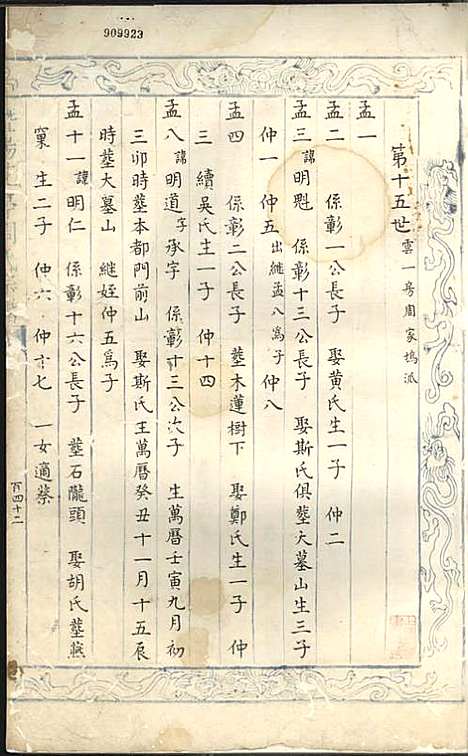 909923
第十五世 雲一房周家塢派
孟一
孟二 係彰一公長子 娶黄氏生一子 仲二
孟三 諱明魁 係彰十三公長子 娶斯氏俱塟大墓山生三子
仲一 仲五 出繼孟八爲子 仲八
孟四 係彰二公長子 塟木蓮樹下 娶鄭氏生一子 仲
三 續吳氏生一子 仲十四
孟八 諱明道 字承字 係彰十三公次子 生萬曆壬寅九月初
三卯時塟本都門前山 娶斯氏王萬曆癸丑十一月十五辰
時塟大墓山 継姪仲五爲子
孟十一 諱明仁 係彰十六公長子 塟石隴頭 娶胡氏塟燕
窠 生二子 仲六 仲十七 一女適蔡
百四十二